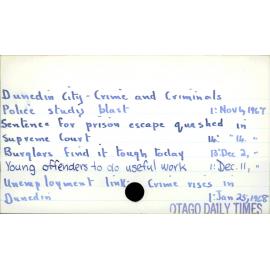 Dunedin City - Crime and Criminals
Police study blast 1: Nov 4, 1967
Sentence for prison escape quashed in
Supreme Court 14: " 14. "
Burglars find it tough today 13: Dec 2, "
Young offenders to do useful work 1: Dec. 11, "
Unemployment link: Crime rises in
Dunedin 1: Jan 25, 1968
OTAGO DAILY TIMES